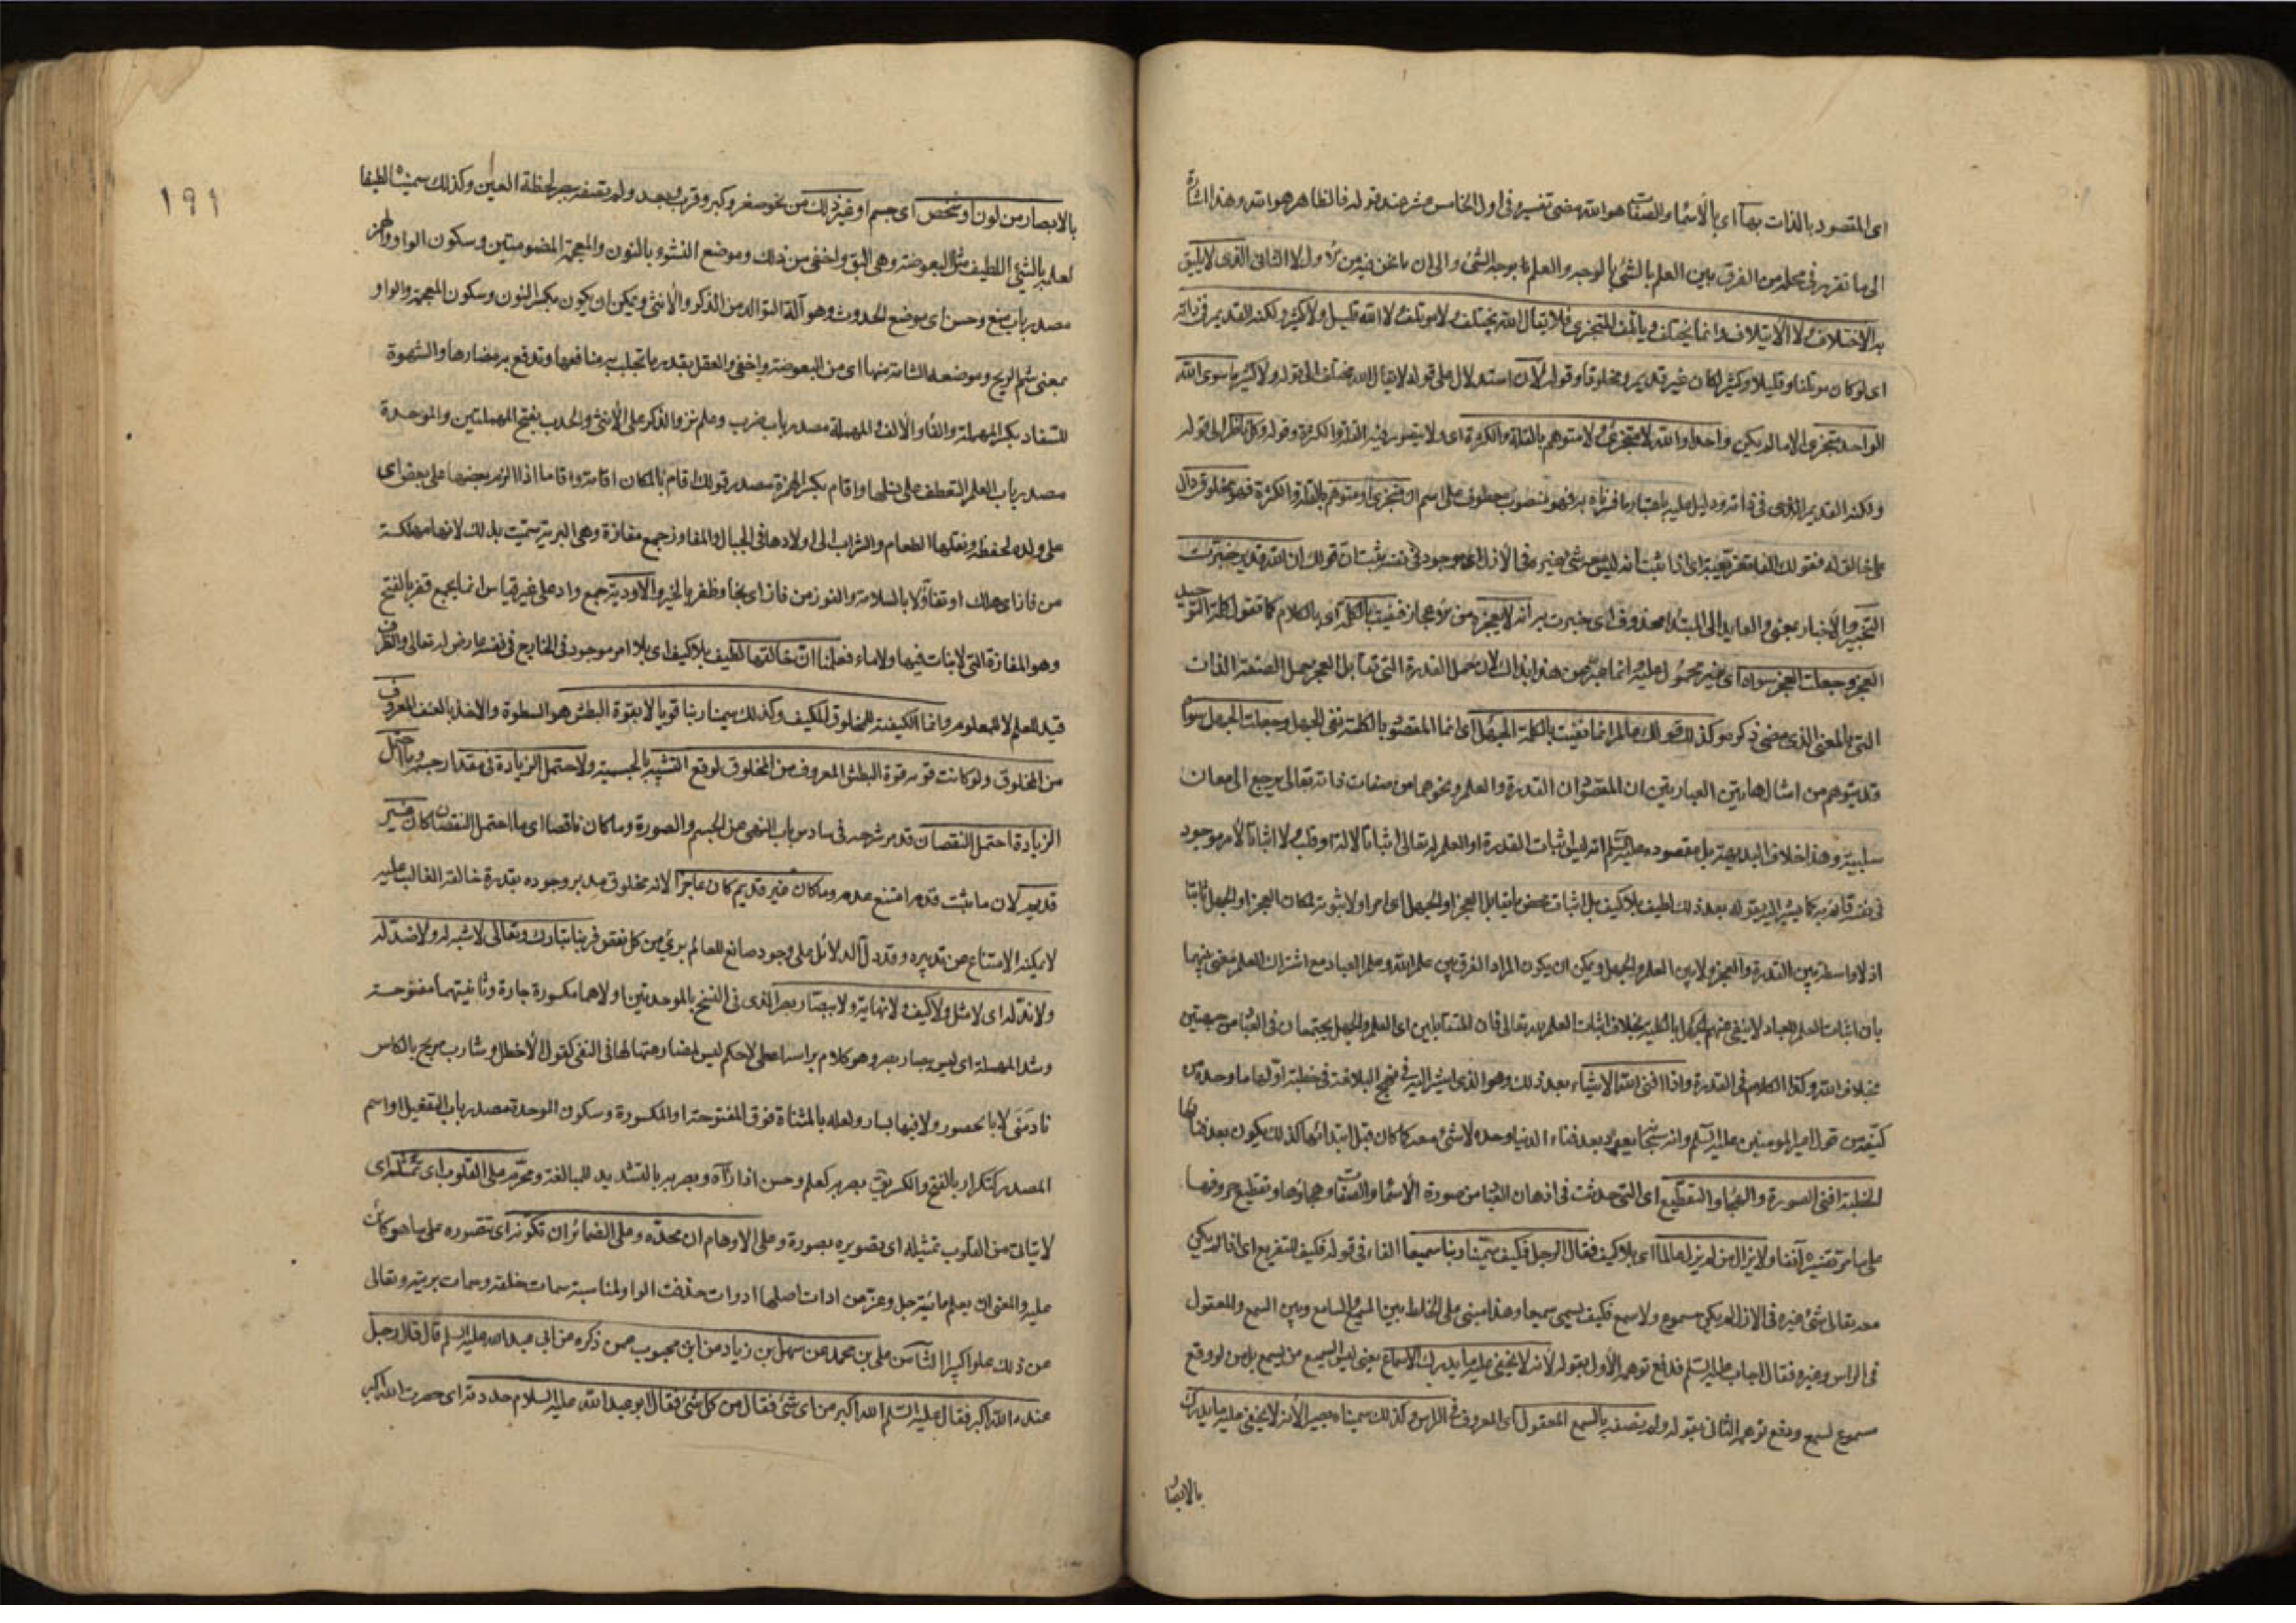 اى المقصود بالذات بها اى بالأسما والصفا هو الله مضى تفسيره فى اول الخامس عشر عند قوله فالظاهر هو الله وهذا اشارة
الى ما تقرر فى محله من الفرق بين العلم بالشئ بالوجه والعلم بوجه الشئ والى ان ما نحن فيه من الاول لا الثانى الذى لا يليق
به الاختلاف ولا الايتلاف وانما يختلف وياتلف المتجزى فلا يقال الله يختلف ولا موتلف ولا الله قليل ولا كثير ولكنه القديم فى ذاته
اى لو كان موتلفا وقليلا وكثيرا لكان غير قديم ومخلوقا وقوله لان استدلال على قوله لا يقال الله مختلف الى قوله ولا كثير ما سوى الله
الواحد متجزى الا ما لم يكن واحدا والله لا متجزئ ولا متوهم بالقلة والكثرة اى ولا يتصور فيه القلة والكثرة وقوله وكل ناظر الى قوله
ولكنه القديم الذى فى ذاته ودليل عليه باعتبار ما فهو منصوب معطوف على اسم ان متجزى او متوهم بالقلة والكثرة فهو مخلوق دال
على خالق له فقولك الفا تفريعية اى اذا ثبت انه ليس معه شئ غيره فى الأزل اى موجود فى نفسه ثبت ان قولك ان الله قدير خبرت
التخبير والاخبار بمعنى والعايد الى المبتدا محذوف اى خبرت به انه لا يعجزه من الاعجاز فنفيت بالكلمة اى بالكلام كما تقول كلمة التوحيد
العجز وجعلت العجز سواه اى غير محمول عليه انما عبر عن هذا بذاك لان حمل القدرة التى تقابل العجز حمل الصفة الذات
التى بالمعنى الذى مضى ذكره وكذلك قولك عالم انما نفيت بالكلمة الجهل اى انما المقصود بالكلمة نفى الجهل وجعلت الجهل سواه
قد يتوهم من امثال هاتين العبارتين ان المقصود ان القدرة والعلم ونحوهما من صفات ذاته تعالى يرجع الى معان
سلبية وهذا خلاف البديهة بل مقصوده عليه السلم انه ليس اثبات القدرة او العلم له تعالى اثباتا لالة او قلب ولا اثباتا لأمر موجود
فى نفسه قائم به كما يشير اليه بقوله بعد ذلك لطيف بلا كيف بل اثبات محض ما يقابل العجز او الجهل اى امرا ولا ثبوته لكان العجز او الجهل ثابتا
اذ لا واسطة بين القدرة والعجز ولا بين العلم والجهل ويمكن ان يكون المراد الفرق بين علم الله وعلم العباد مع اشتراك العلم معنى بينهما
بان اثبات العلم للعباد لا ينفى عنهم الجهل بالكلية بخلاف اثبات العلم لله تعالى فان المتقابلين اى العلم والجهل يجتمعان فى العباد من جهتين
بخلاف الله وكذا الكلام فى القدرة واذا افنى الله الاشياء بعد ذلك وهو الذى اشير اليه فى نهج البلاغة فى خطبة اولها ما وحده من
كيفه من قول امير المومنين عليه السلم وانه سبحانه يعود بعد فناء الدنيا وحده لا شئ معه كما كان قبل ابتدائها كذلك يكون بعد فنائها
الخطبة افنى الصورة والهجا والتقطيع اى التى حدثت فى اذهان العبا من صورة الأسما والصفات وهجاؤها وتقطيع حروفها
على ما مر تفسيره آنفا ولا يزال من لم يزل عالما اى بلا كيف فقال الرجل فكيف سمينا ربنا سميعا الفاء فى قوله فكيف للتفريع اى اذا لم يكن
معه تعالى شئ غيره فى الازل لم يكن مسموع ولا سمع فكيف يسمى سميعا وهذا مبنى على الخلط بين السميع والسامع وبين السمع والمعقول
فى الراس وغيره فقال اجاب عليه السلم فدفع توهمه الأول بقوله لأنه لا يخفى عليه ما يدرك بالاسماع يعنى ليس السميع من يسمع بل من لو وقع
مسموع لسمع ودفع توهمه الثانى بقوله ولم نصفه بالسمع المعقول اى المعروف فى الراس وكذلك سميناه بصيرا لأنه لا يخفى عليه ما يدرك
بالابصا
١٩١
بالابصار من لون او شخص اى جسم او غير ذلك من نحو صغر وكبر وقرب وبعد ولم نصفه ببصر لحظة العين وكذلك سميناه لطيفا
لعلمه بالشئ اللطيف مثل البعوضة وهى البق واخفى من ذلك وموضع النشوء بالنون والمعجمة المضمومتين وسكون الواو والهمز
مصدر باب منع وحسن اى موضع الحدوث وهو آلة التوالد من الذكر والأنثى ويمكن ان يكون بكسر النون وسكون المعجمة والواو
بمعنى شم الريح وموضعه الشامة منها اى من البعوضة واخفى والعقل بقدر ما تجلب به منافعها وتدفع به مضارها والشهوة
للسفاد بكسر المهملة والفاء والألف والمهملة مصدر باب ضرب وعلم نزو الذكر على الأنثى والحدب بفتح المهملتين والموحدة
مصدر باب العلم التعطف على نسلها واقام بكسر الهمزة مصدر قولك اقام بالمكان اقامة واقاما اذا لزم بعضها على بعض اى
على ولده لحفظه ونقلها الطعام والشراب الى اولادها فى الجبال والمفاوز جمع مفازة وهى البرية سميت بذلك لانها مهلكة
من فاز اى هلك او تفاؤلا بالسلامة والفوز من فاز اى نجا وظفر بالخير والاودية جمع واد على غير قياس انما يجمع قفر بالفتح
وهو المفازة التى لا نبات فيها ولا ماء فعلمنا ان خالقها لطيف بلا كيف اى بلا امر موجود فى الخارج فى نفسه عارض له تعالى والظرف
قيد للعلم لا للمعلوم وانما الكيفية للمخلوق المكيف وكذلك سمينا ربنا قويا لا بقوة البطش هو السطوة والاخذ بالعنف المعروف
من المخلوق ولو كانت قوته قوة البطش المعروف من المخلوق لوقع التشبيه بالجسمية ولاحتمل الزيادة فى مقدار جسمه وما احتمل
الزيادة احتمل النقصان قد مر شرحه فى سادس باب النهى عن الجسم والصورة وما كان ناقصا اى ما احتمل النقصان كان غير
قديم لان ما ثبت قدمه امتنع عدمه وما كان غير قديم كان عاجزا لانه مخلوق مدبر وجوده بقدرة خالقه الغالب عليه
لا يمكنه الامتناع عن تدبيره وقد دل الدلائل على وجود صانع للعالم برئ من كل نقص فربنا تبارك وتعالى لا شبه له ولا ضد له
ولا ند له اى لا مثل ولا كيف ولا نهاية ولا ببصار بصر الذى فى النسخ بالموحدتين اولاهما مكسورة جارة وثانيتهما مفتوحة
وشد المهملة اى ليس ببصار بصر وهو كلام براسه اعطى لا حكم ليس لمضارعتها لها فى النفى كقول الأخطل وشارب مربح بالكاس
نادمنى لا بالحصور ولا فيها بسار ولعله بالمثناة فوق المفتوحة او المكسورة وسكون الموحدة مصدر باب التفعيل او اسم
المصدر كتكرار بالفتح والكسر بصر به كعلم وحسن اذا رآه وبصر به بالتشديد للمبالغة ومحرم على القلوب اى تمثله اى
لا يتاتى من القلوب تمثيله اى تصويره بصورة وعلى الاوهام ان تحده وعلى الضمائر ان تكونه اى تتصوره على ما هو كائن
عليه والمعنى ان يعلم مائيته جل وعز من ادات اصلها ادوات حذفت الواو لمناسبة سمات خلقه وسمات بريته وتعالى
عن ذلك علوا كبيرا الثامن على بن محمد عن سهل بن زياد عن ابن محبوب عمن ذكره عن ابى عبد الله عليه السلم قال قال رجل
عنده الله اكبر فقال عليه السلم الله اكبر من اى شئ فقال من كل شئ فقال ابو عبد الله عليه السلام حددته اى حصرت الله اكبر